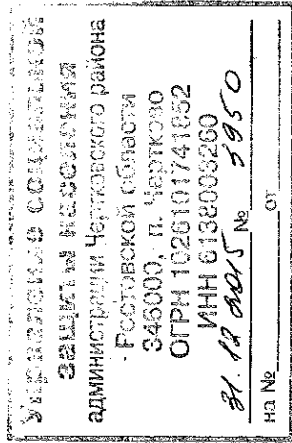 Управление социальной
защиты населения
администрации Чертковского района
Ростовской области
346000, п. Чертково
ОГРН 1026101741652
ИНН 6138003260
31.12.2015 № 3950
на № от